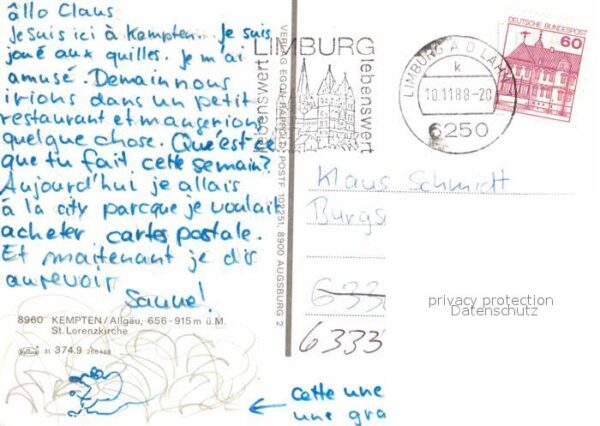 âllo Claus
Je suis ici à Kempten. Je suis
joué aux quilles. Je m'ai
amusé. Demain nous
irions dans un petit
restaurant et mangerion
quelque chose. Que est-ce
que tu fait cette semain?
Aujourd'hui je allais
à la city parcque je voulait
acheter cartes postale.
Et maitenant je dis
aurevoir
Sanne!
8960 KEMPTEN/Allgäu, 656-915 m ü.M.
St. Lorenzkirche
31 374.9
VERLAG POSTF. 102251, 8900 AUGSBURG 2
LIMBURG
lebenswert
lebenswert
LIMBURG A D LAHN
k
10.11.88-20
6250
DEUTSCHE BUNDESPOST
60
Klaus Schmidt
Burgs
6333
cette une
une gra
privacy protection
Datenschutz